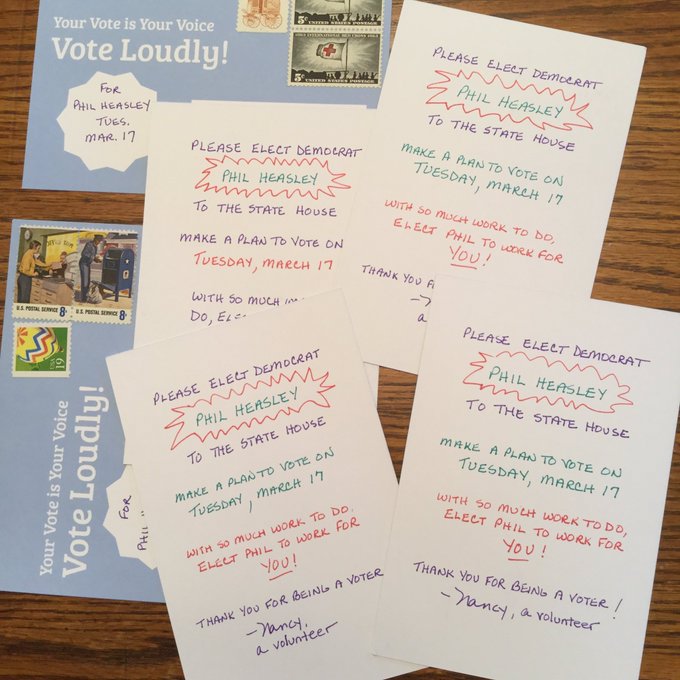 Your Vote is Your Voice
Vote Loudly!
FOR
PHIL HEASLEY
TUES.
MAR. 17
5¢ UNITED STATES POSTAGE
1863 INTERNATIONAL RED CROSS 1963
5¢ UNITED STATES POSTAGE
PLEASE ELECT DEMOCRAT
PHIL HEASLEY
TO THE STATE HOUSE
MAKE A PLAN TO VOTE ON
TUESDAY, MARCH 17
WITH SO MUCH WORK TO DO,
ELECT PHIL TO WORK FOR
YOU!
THANK YOU
a
PLEASE ELECT DEMOCRAT
PHIL HEASLEY
TO THE STATE HOUSE
MAKE A PLAN TO VOTE ON
TUESDAY, MARCH 17
WITH SO MUCH
DO,
U.S. POSTAL SERVICE 8¢
U.S. POSTAL SERVICE 8¢
USA 19
Your Vote is Your Voice
Vote Loudly!
FOR
PHIL
PLEASE ELECT DEMOCRAT
PHIL HEASLEY
TO THE STATE HOUSE
MAKE A PLAN TO VOTE ON
TUESDAY, MARCH 17
WITH SO MUCH WORK TO DO.
ELECT PHIL TO WORK FOR
YOU!
THANK YOU FOR BEING A VOTER
-Nancy,
a volunteer
PLEASE ELECT DEMOCRAT
PHIL HEASLEY
TO THE STATE HOUSE
MAKE A PLAN TO VOTE ON
TUESDAY, MARCH 17
WITH SO MUCH WORK TO DO,
ELECT PHIL TO WORK FOR
YOU!
THANK YOU FOR BEING A VOTER!
-Nancy, a volunteer